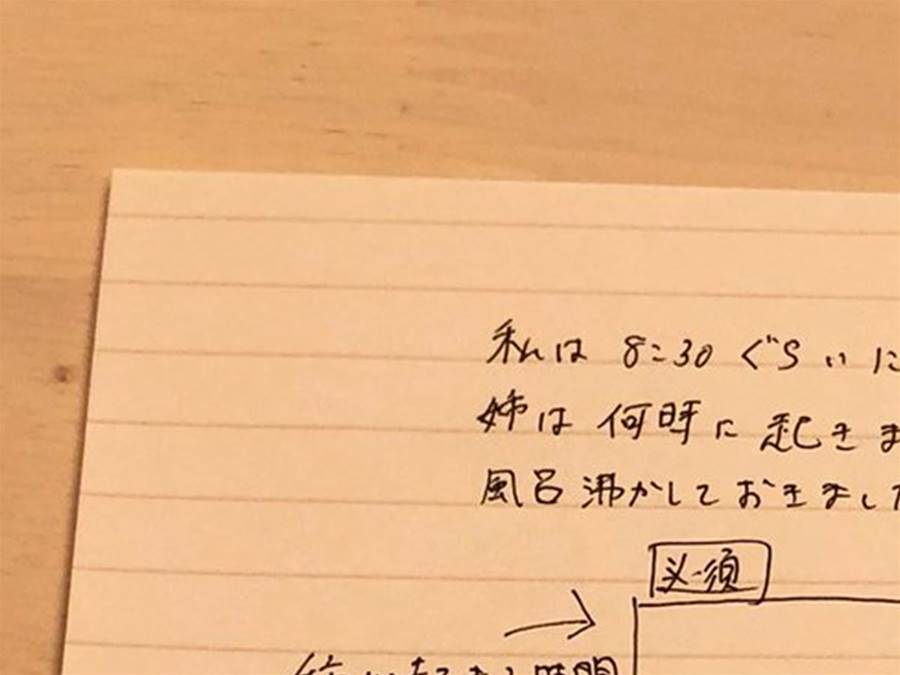 私は 8:30 ぐらいに
姉は 何時に 起きま
風呂 沸かして おきまし
必須